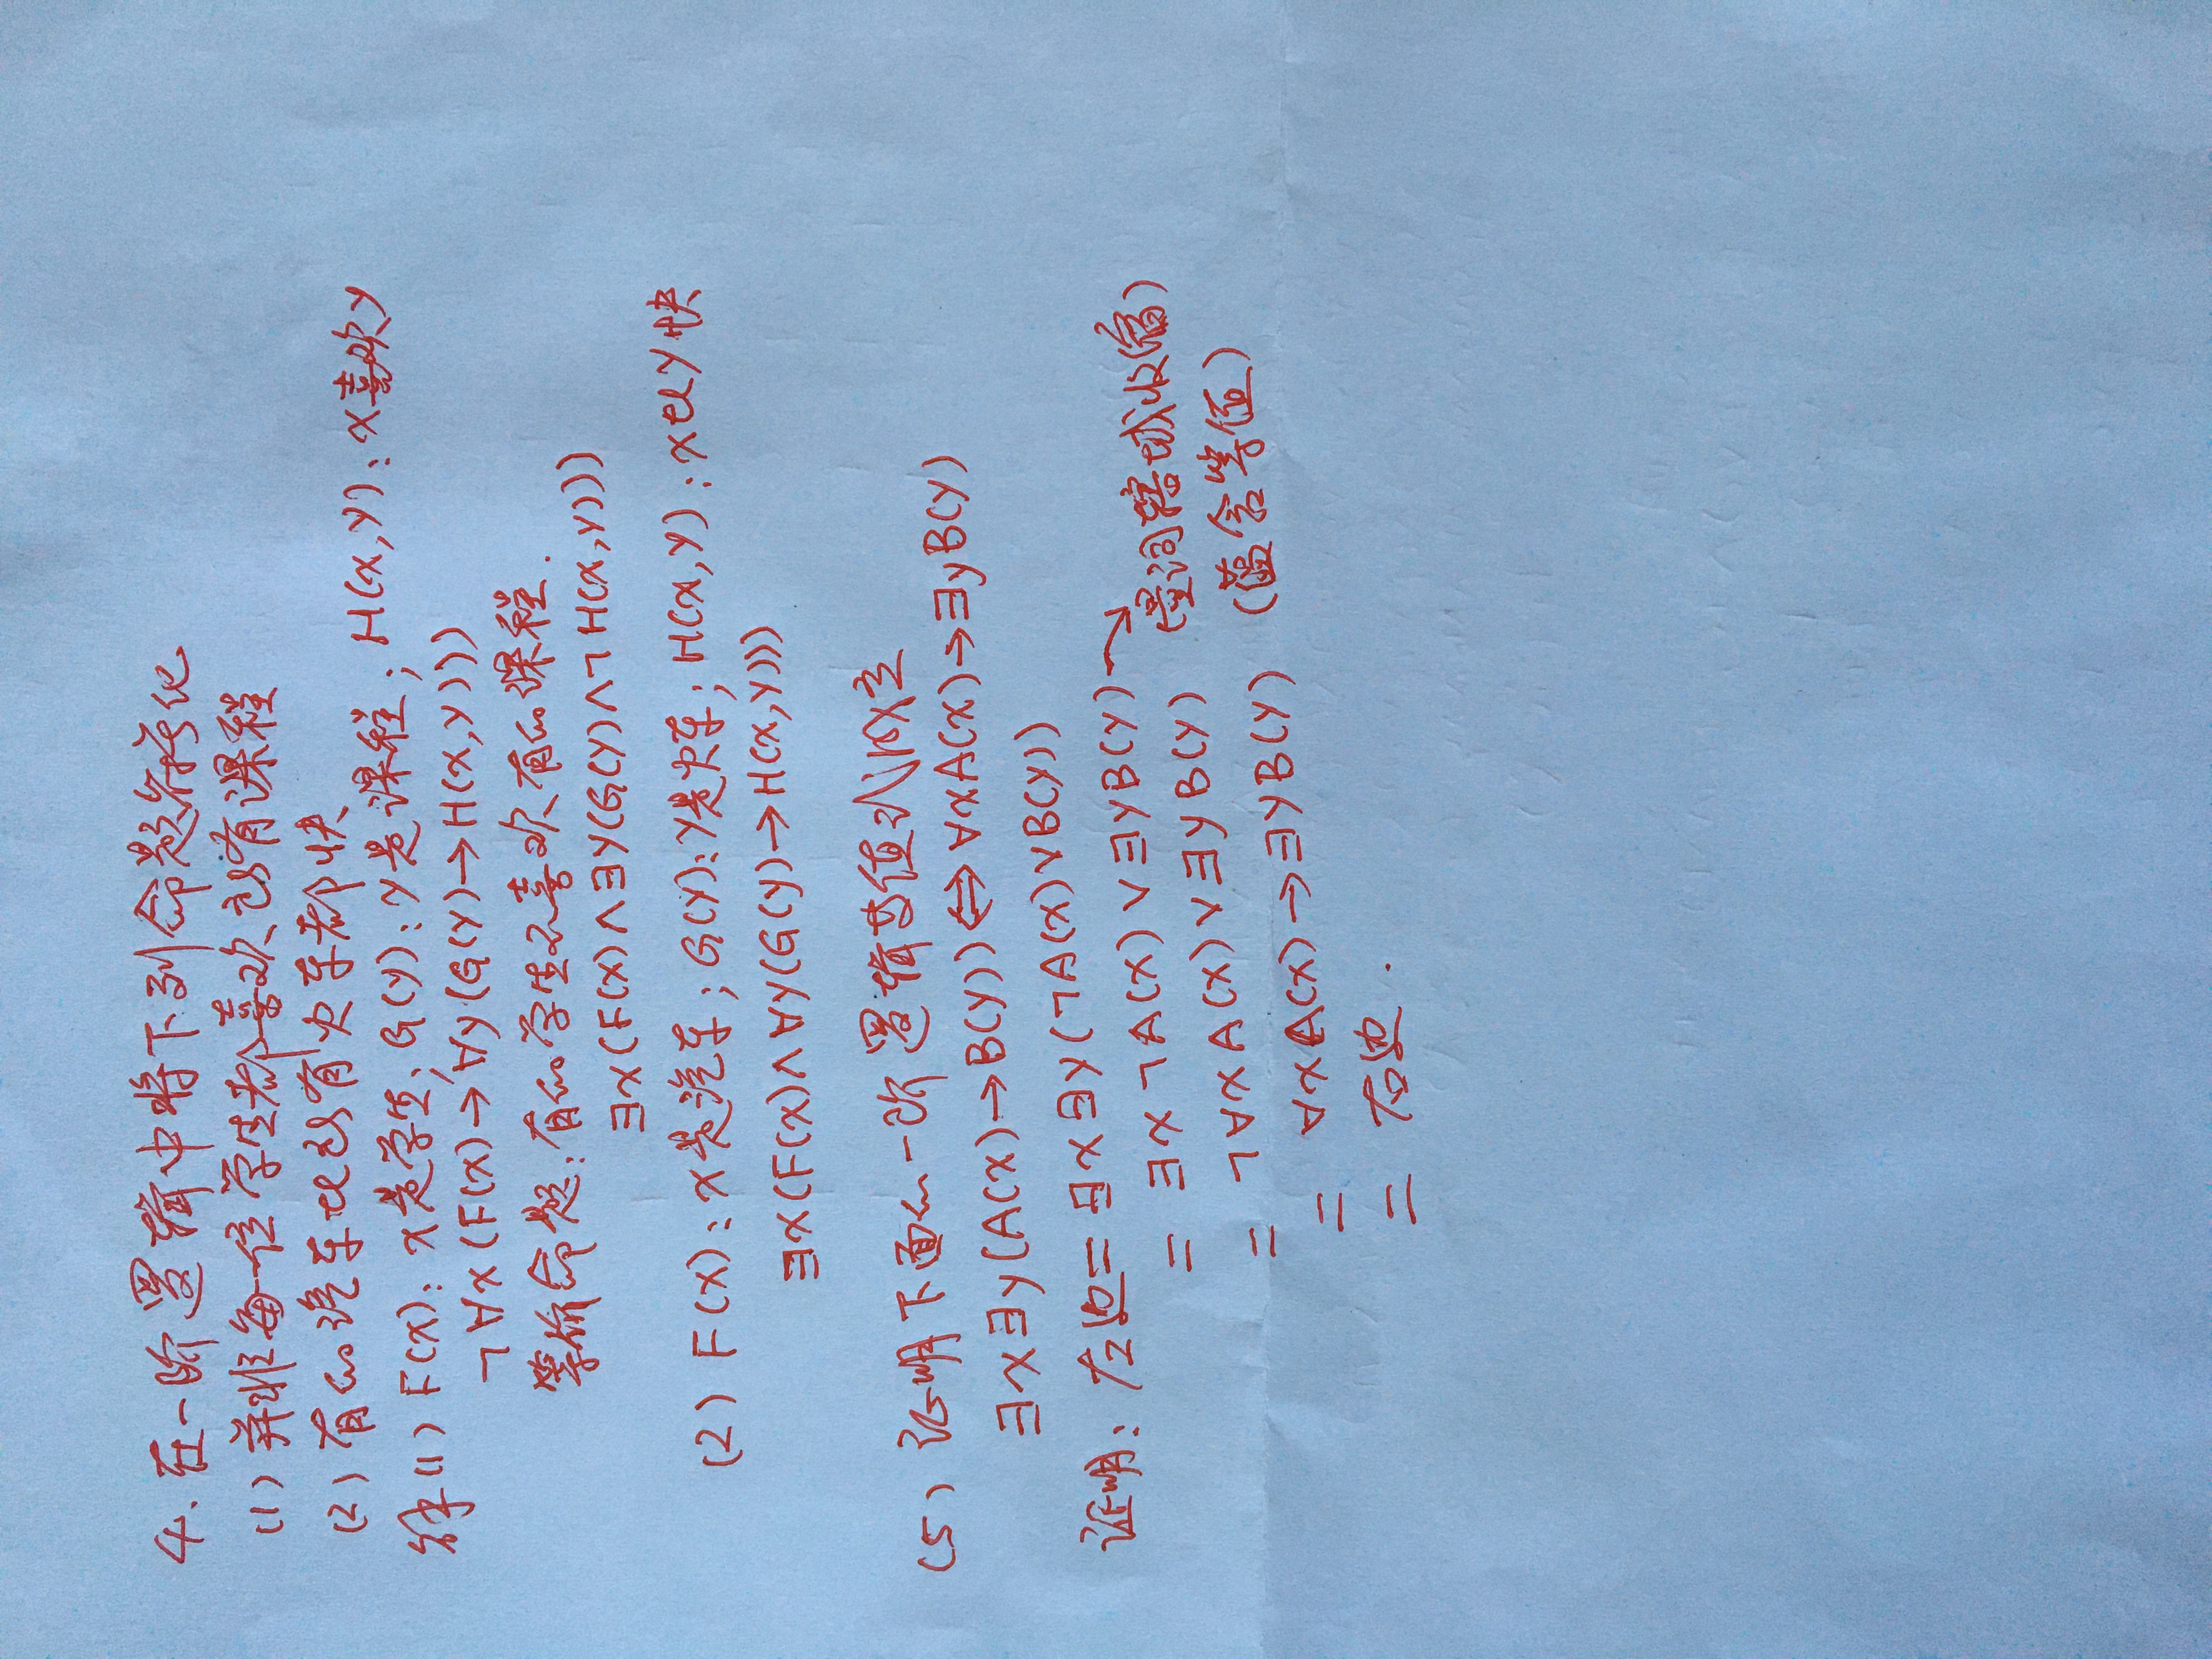 4. 在一阶逻辑中将下列命题符号化
(1) 并非每一位学生都喜欢所有课程
(2) 有的汽车比所有火车都快
解(1) F(x): x是学生; G(y): y是课程; H(x,y): x喜欢y
¬∀x(F(x)→∀y(G(y)→H(x,y)))
等价命题: 有的学生不喜欢有的课程.
∃x(F(x)∧∃y(G(y)∧¬H(x,y)))
(2) F(x): x是汽车; G(y): y是火车; H(x,y): x比y快
∃x(F(x)∧∀y(G(y)→H(x,y)))
(5) 证明下面的一阶逻辑等值式成立
∃x∃y(A(x)→B(y))⇔∀xA(x)→∃yB(y)
证明: 左边=∃x∃y(¬A(x)∨B(y))
= ∃x¬A(x)∨∃yB(y) → (量词辖域收缩)
= ¬∀xA(x)∨∃yB(y)
= ∀xA(x)→∃yB(y) (蕴含等值)
= 右边.